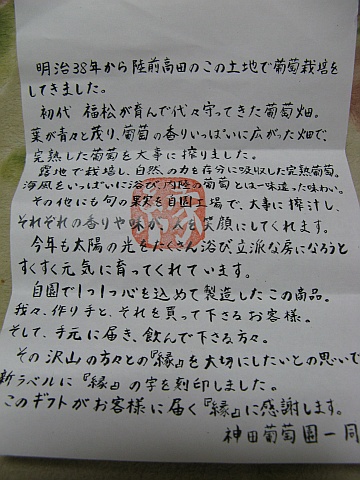 明治38年から陸前高田のこの土地で葡萄栽培を
してきました。
初代 福松が育んで代々守ってきた葡萄畑。
葉が青々と茂り、葡萄の香りいっぱいに広がった畑で、
完熟した葡萄を大事に搾りました。
露地で栽培し、自然の力を存分に吸収した完熟葡萄。
海風をいっぱいに浴び、内陸の葡萄とは一味違った味わい。
その他にも旬の果実を自園工場で、大事に搾汁し、
それぞれの香りや味が人を笑顔にしてくれます。
今年も太陽の光をたくさん浴び立派な房になろうと
すくすく元気に育ってくれています。
自園で1つ1つ心を込めて製造したこの商品。
我々、作り手と、それを買って下さるお客様。
そして、手元に届き、飲んで下さる方々。
その沢山の方々との『縁』を大切にしたいとの思いで
新ラベルに『縁』の字を刻印しました。
このギフトがお客様に届く『縁』に感謝します。
神田葡萄園一同